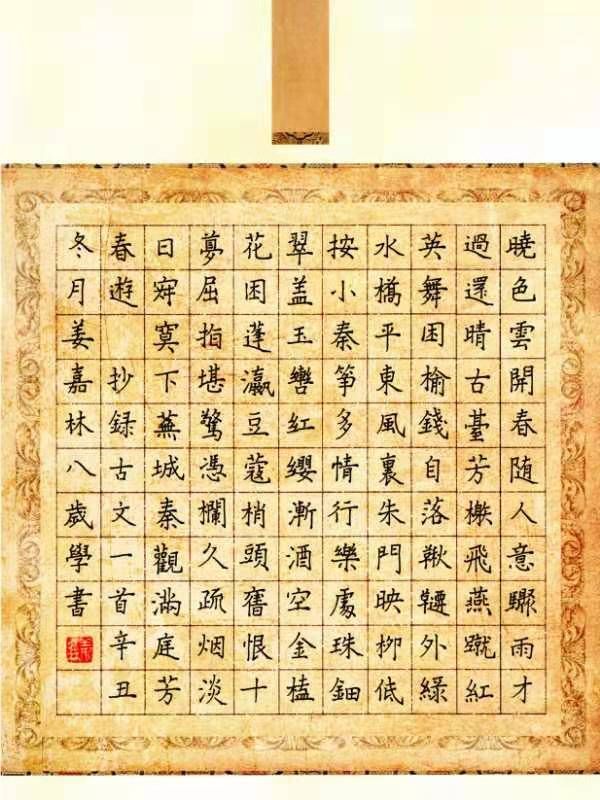 曉色雲開春随人意驟雨才
過還晴古臺芳榭飛燕蹴紅
英舞困榆錢自落鞦韆外綠
水橋平東風裏朱門映柳低
按小秦筝多情行樂處珠鈿
翠盖玉轡紅纓漸酒空金榼
花困蓬瀛豆蔻梢頭舊恨十
夢屈指堪驚憑欄久疏烟淡
日寂寞下蕪城秦觀滿庭芳
春遊 抄録古文一首辛丑
冬月姜嘉林八歲學書